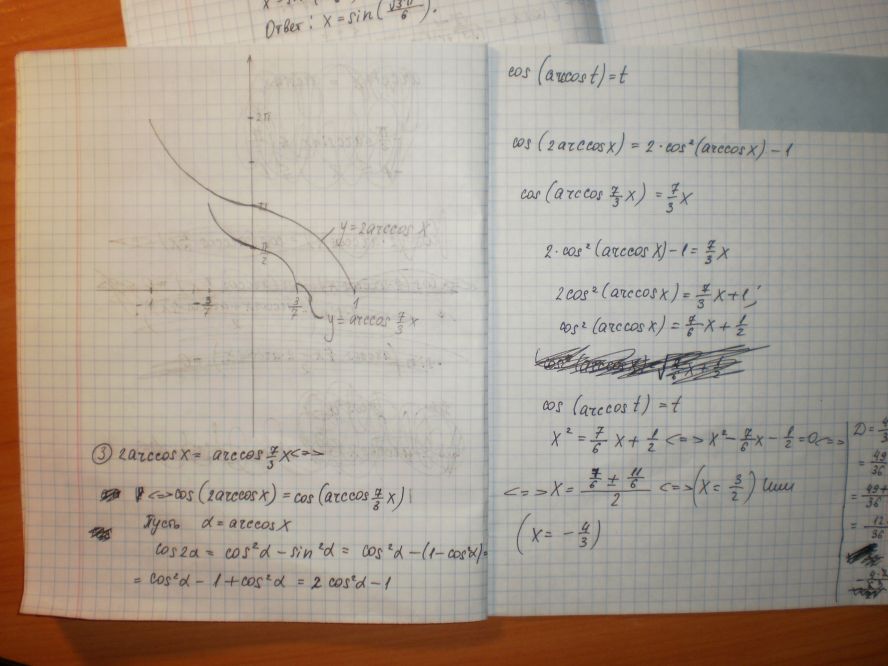 Ответ: x = sin(√3π/6).
2π
π
π/2
y=2arccosx
-1 -3/7 3/7 1
y=arccos 7/3 x
③ 2arccosx = arccos 7/3 x <=>
<=> cos(2arccosx) = cos(arccos 7/3 x)
Пусть α = arccosx
cos2α = cos²α - sin²α = cos²α - (1-cos²α) =
= cos²α - 1 + cos²α = 2cos²α - 1
cos(arccost) = t
cos(2arccosx) = 2·cos²(arccosx) - 1
cos(arccos 7/3 x) = 7/3 x
2·cos²(arccosx) - 1 = 7/3 x
2cos²(arccosx) = 7/3 x + 1;
cos²(arccosx) = 7/6 x + 1/2
cos(arccost) = t
x² = 7/6 x + 1/2 <=> x² - 7/6 x - 1/2 = 0 <=>
<=> x = (7/6 ± 11/6)/2 <=> (x = 3/2) или
(x = -4/3)
D =
= 49/36
= 49+/36
= 12/36